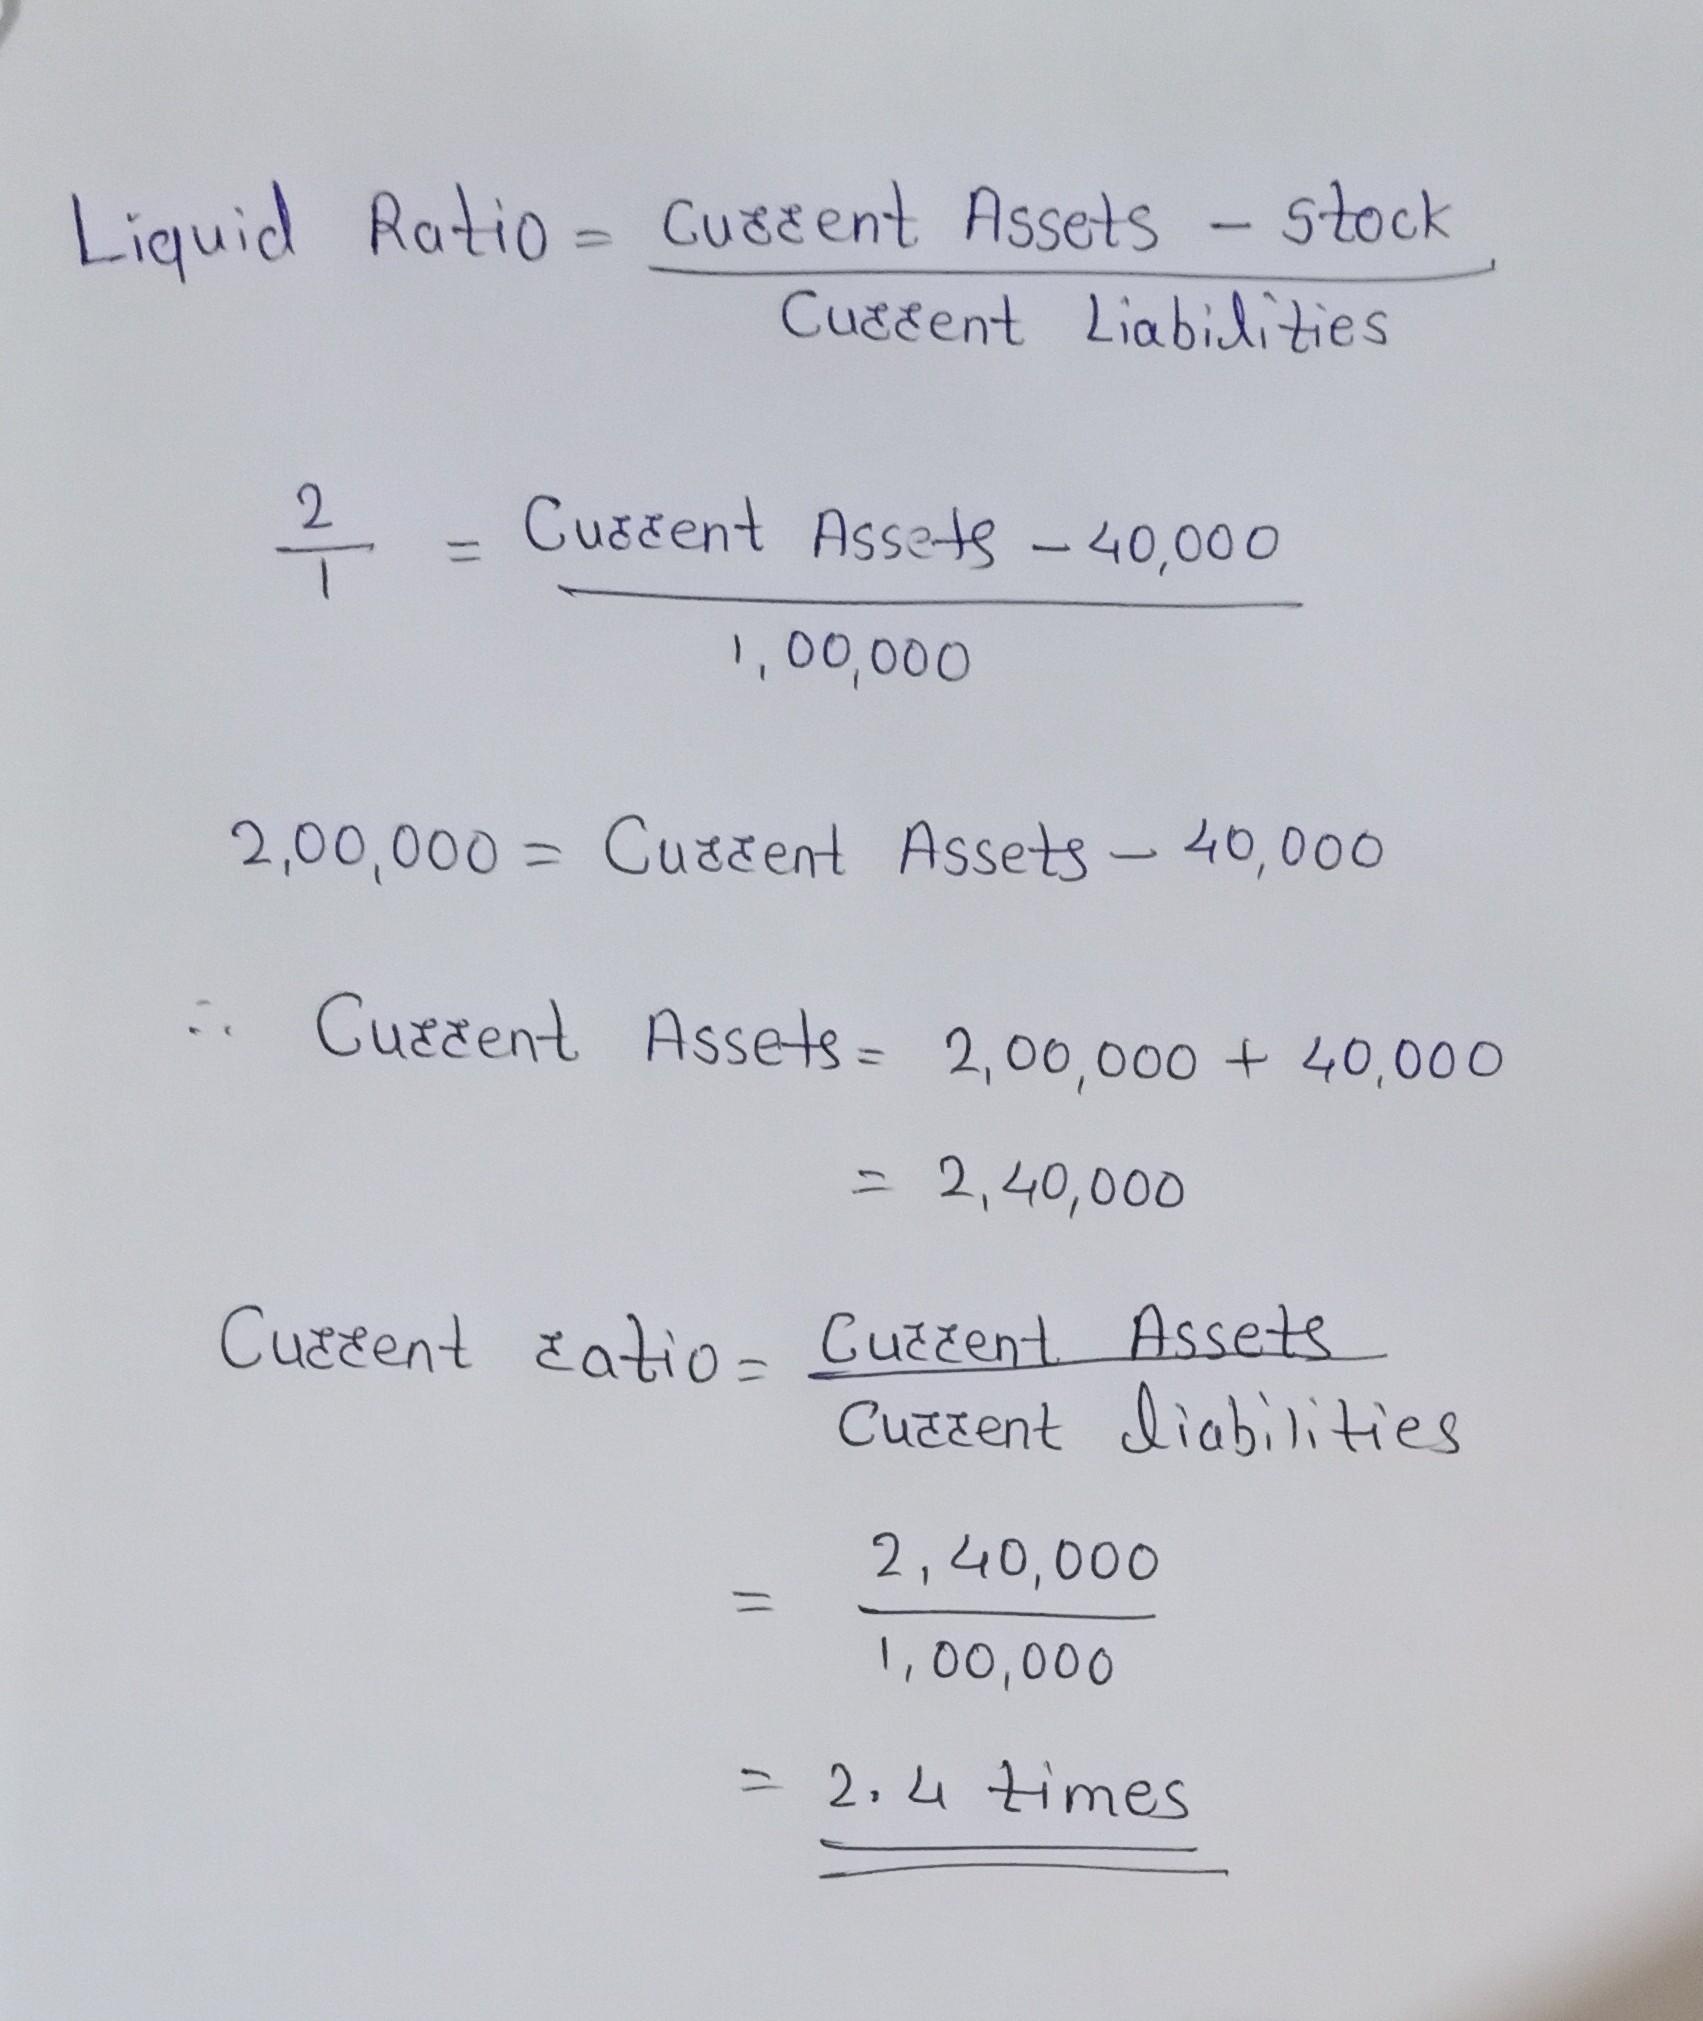 Liquid Ratio = Current Assets - Stock
Current Liabilities
2
1
= Current Assets - 40,000
1,00,000
2,00,000 = Current Assets - 40,000
∴ Current Assets = 2,00,000 + 40,000
= 2,40,000
Current ratio = Current Assets
Current liabilities
= 2,40,000
1,00,000
= 2.4 times